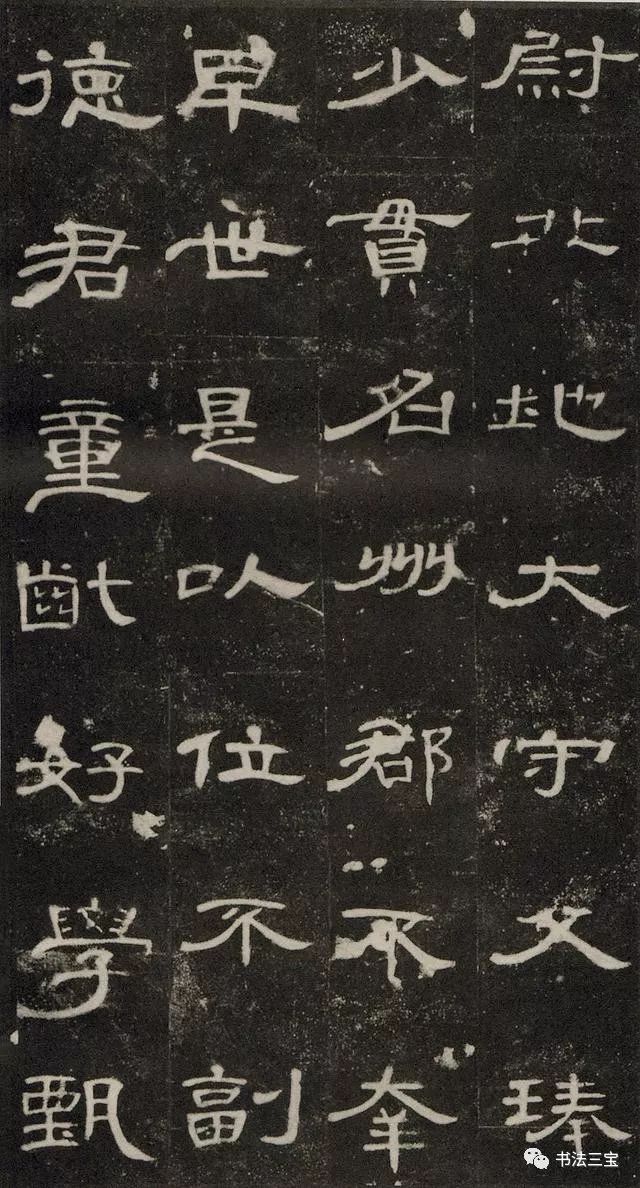 尉北地大守父琫
少貫名州郡不幸
早世是以位不副
德君童齔好學甄
书法三宝